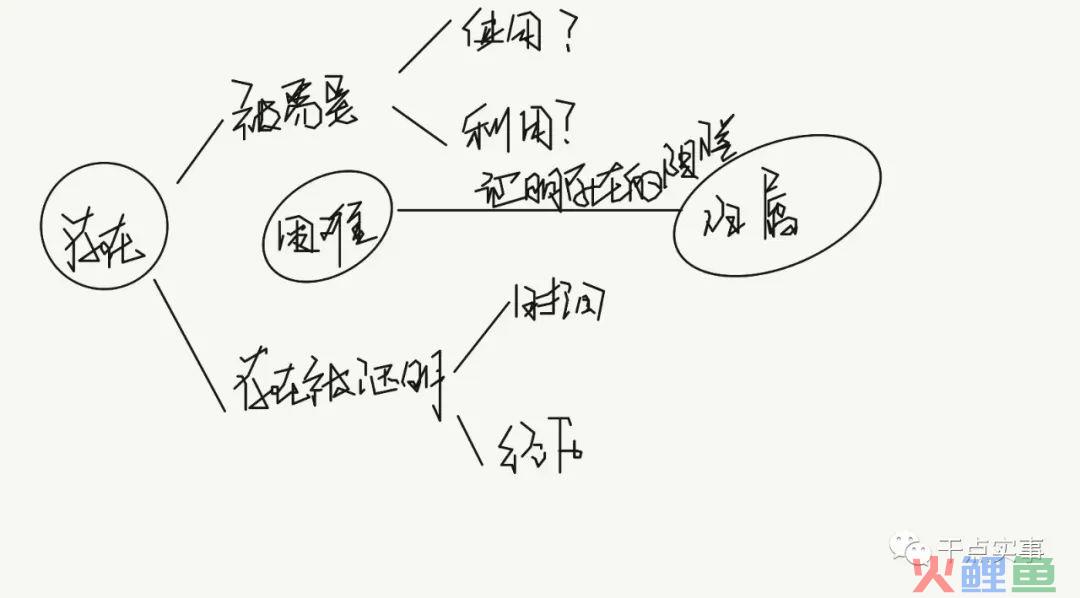 使用?
被需要
利用?
证明存在的阻碍
存在
困难
归属
时间
存在被证明
经历
干点实事
火鲤鱼